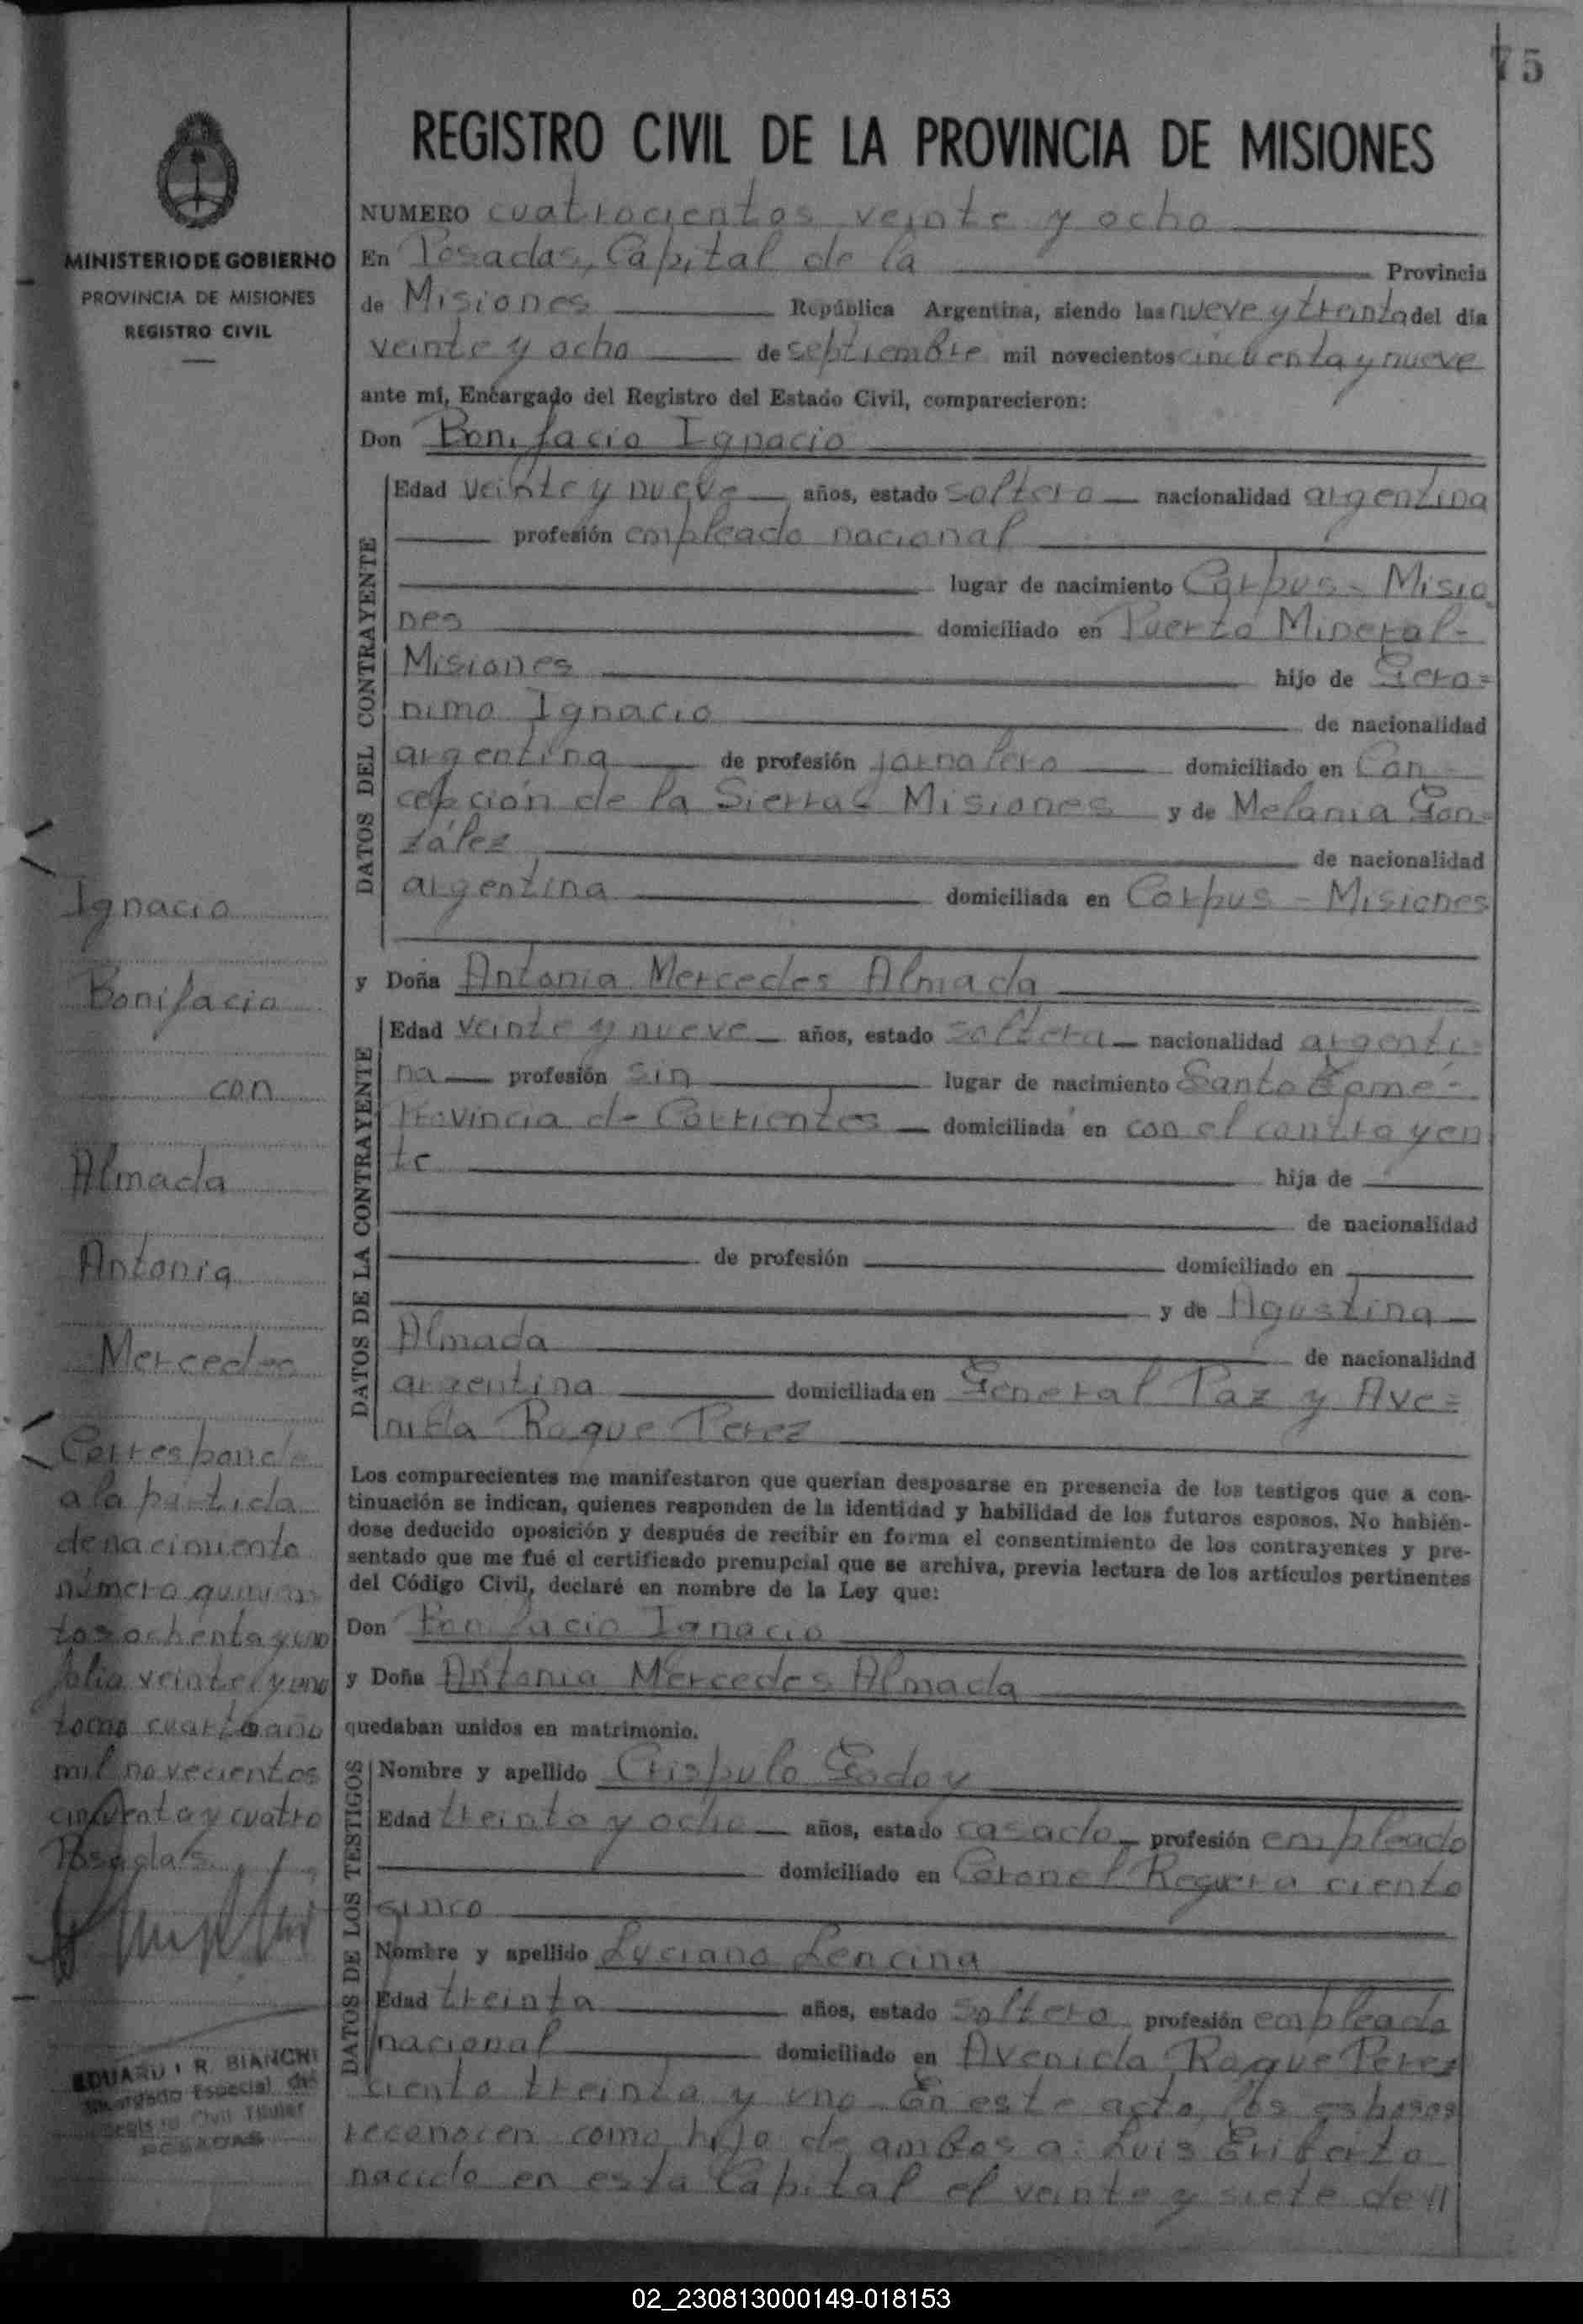 75
REGISTRO CIVIL DE LA PROVINCIA DE MISIONES
MINISTERIO DE GOBIERNO
PROVINCIA DE MISIONES
REGISTRO CIVIL
NUMERO cuatrocientos veinte y ocho
En Posadas, Capital de la Provincia
de Misiones República Argentina, siendo las nueve y treinta del día
veinte y ocho de septiembre mil novecientos cincuenta y nueve
ante mí, Encargado del Registro del Estado Civil, comparecieron:
Don Bonifacio Ignacio
DATOS DEL CONTRAYENTE
Edad veinte y nueve años, estado soltero nacionalidad argentina
profesión empleado nacional
lugar de nacimiento Corpus - Misio
nes domiciliado en Puerto Mineral -
Misiones hijo de Gero=
nimo Ignacio de nacionalidad
argentina de profesión jornalero domiciliado en Con
cepción de la Sierra - Misiones y de Melania Gon=
zález de nacionalidad
argentina domiciliada en Corpus - Misiones
y Doña Antonia Mercedes Almada
DATOS DE LA CONTRAYENTE
Edad veinte y nueve años, estado soltera nacionalidad argenti=
na profesión sin lugar de nacimiento Santo Tomé -
Provincia de Corrientes domiciliada en con el contrayen
te hija de
de nacionalidad
de profesión domiciliado en
y de Agustina
Almada de nacionalidad
argentina domiciliada en General Paz y Ave=
nida Roque Perez
Los comparecientes me manifestaron que querían desposarse en presencia de los testigos que a con-
tinuación se indican, quienes responden de la identidad y habilidad de los futuros esposos. No habién-
dose deducido oposición y después de recibir en forma el consentimiento de los contrayentes y pre-
sentado que me fué el certificado prenupcial que se archiva, previa lectura de los artículos pertinentes
del Código Civil, declaré en nombre de la Ley que:
Don Bonifacio Ignacio
y Doña Antonia Mercedes Almada
quedaban unidos en matrimonio.
DATOS DE LOS TESTIGOS
Nombre y apellido Crispulo Godoy
Edad treinta y ocho años, estado casado profesión empleado
domiciliado en Coronel Reguera ciento
cinco
Nombre y apellido Luciano Lencina
Edad treinta años, estado soltero profesión empleado
nacional domiciliado en Avenida Roque Perez
ciento treinta y uno En este acto, los esposos
reconocen como hijo de ambos a: Luis Eriberto
nacido en esta Capital el veinte y siete de //
Ignacio
Bonifacio
con
Almada
Antonia
Mercedes
Corresponde
a la partida
de nacimiento
número quinien
tos ochenta y uno
folio veinte y uno
tomo cuarto año
mil novecientos
cincuenta y cuatro
Posadas
EDUARDO R. BIANCHI
Encargado Especial del
Registro Civil Titular
POSADAS
02_230813000149-018153